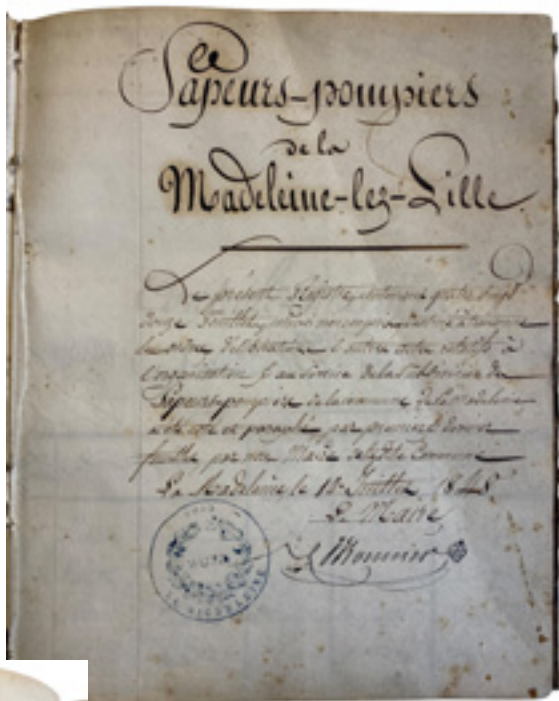 Sapeurs-pompiers
de la
Madeleine-lez-Lille
Le présent Registre, contenant quatre vingt
douze feuillets,
les d'élections & autres actes relatifs à
l'organisation & au Service de la Subdivision des
Sapeurs-pompiers de la commune de la Madeleine,
a été coté et paraphé, par premier & dernier
feuillet par nous Maire de ladite Commune
La Madeleine, le 12 Juillet 1848
Le Maire,
LA MADELEINE